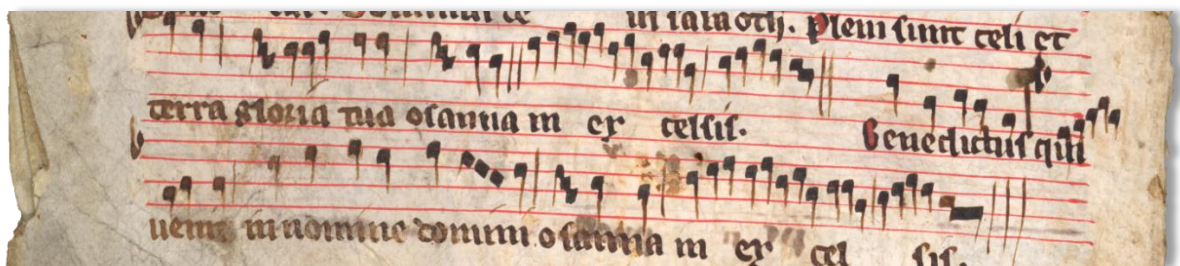 Plem sunt celi et
terra gloria tua osanna in ex celsis. Benedictus qui
uenit in nomine domini. osanna in ex cel sis.